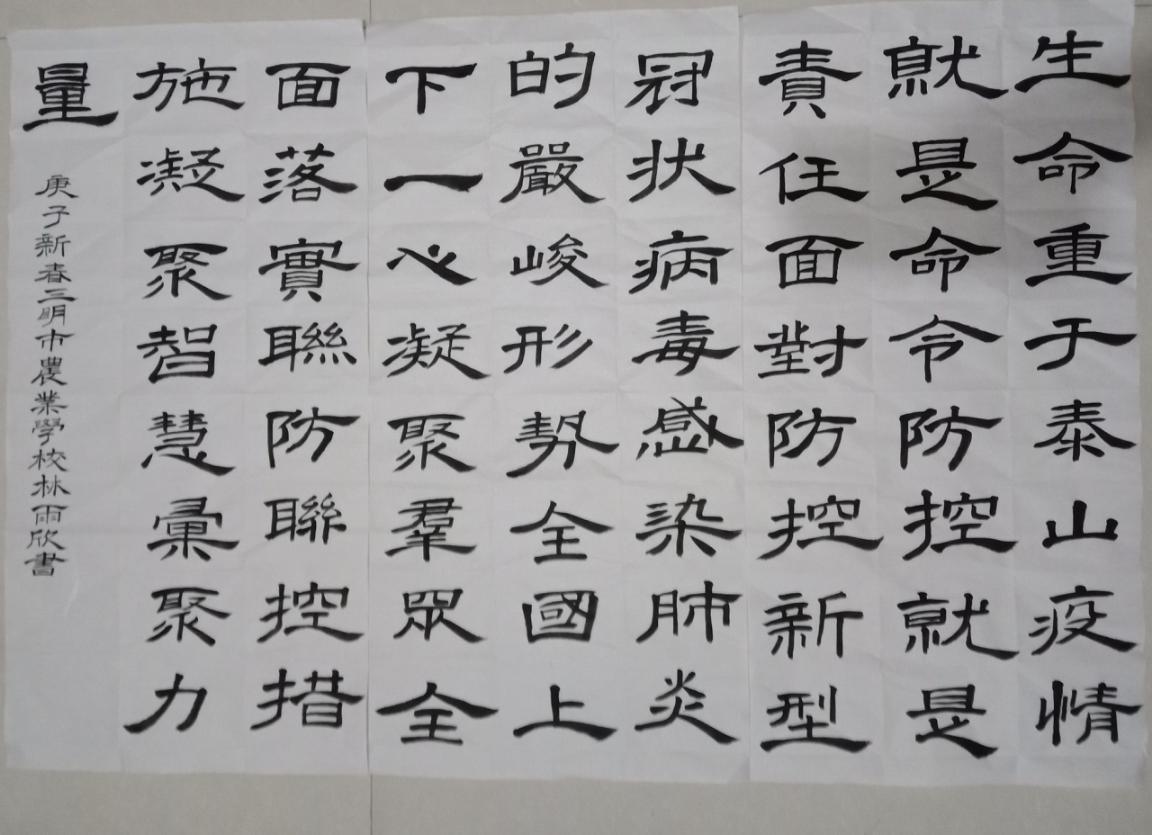 生命重于泰山疫情
就是命令防控就是
責任面對防控新型
冠状病毒感染肺炎
的嚴峻形勢全國上
下一心凝聚羣眾全
面落實聯防聯控措
施凝聚智慧彙聚力
量
庚子新春三明市農業學校林雨欣書